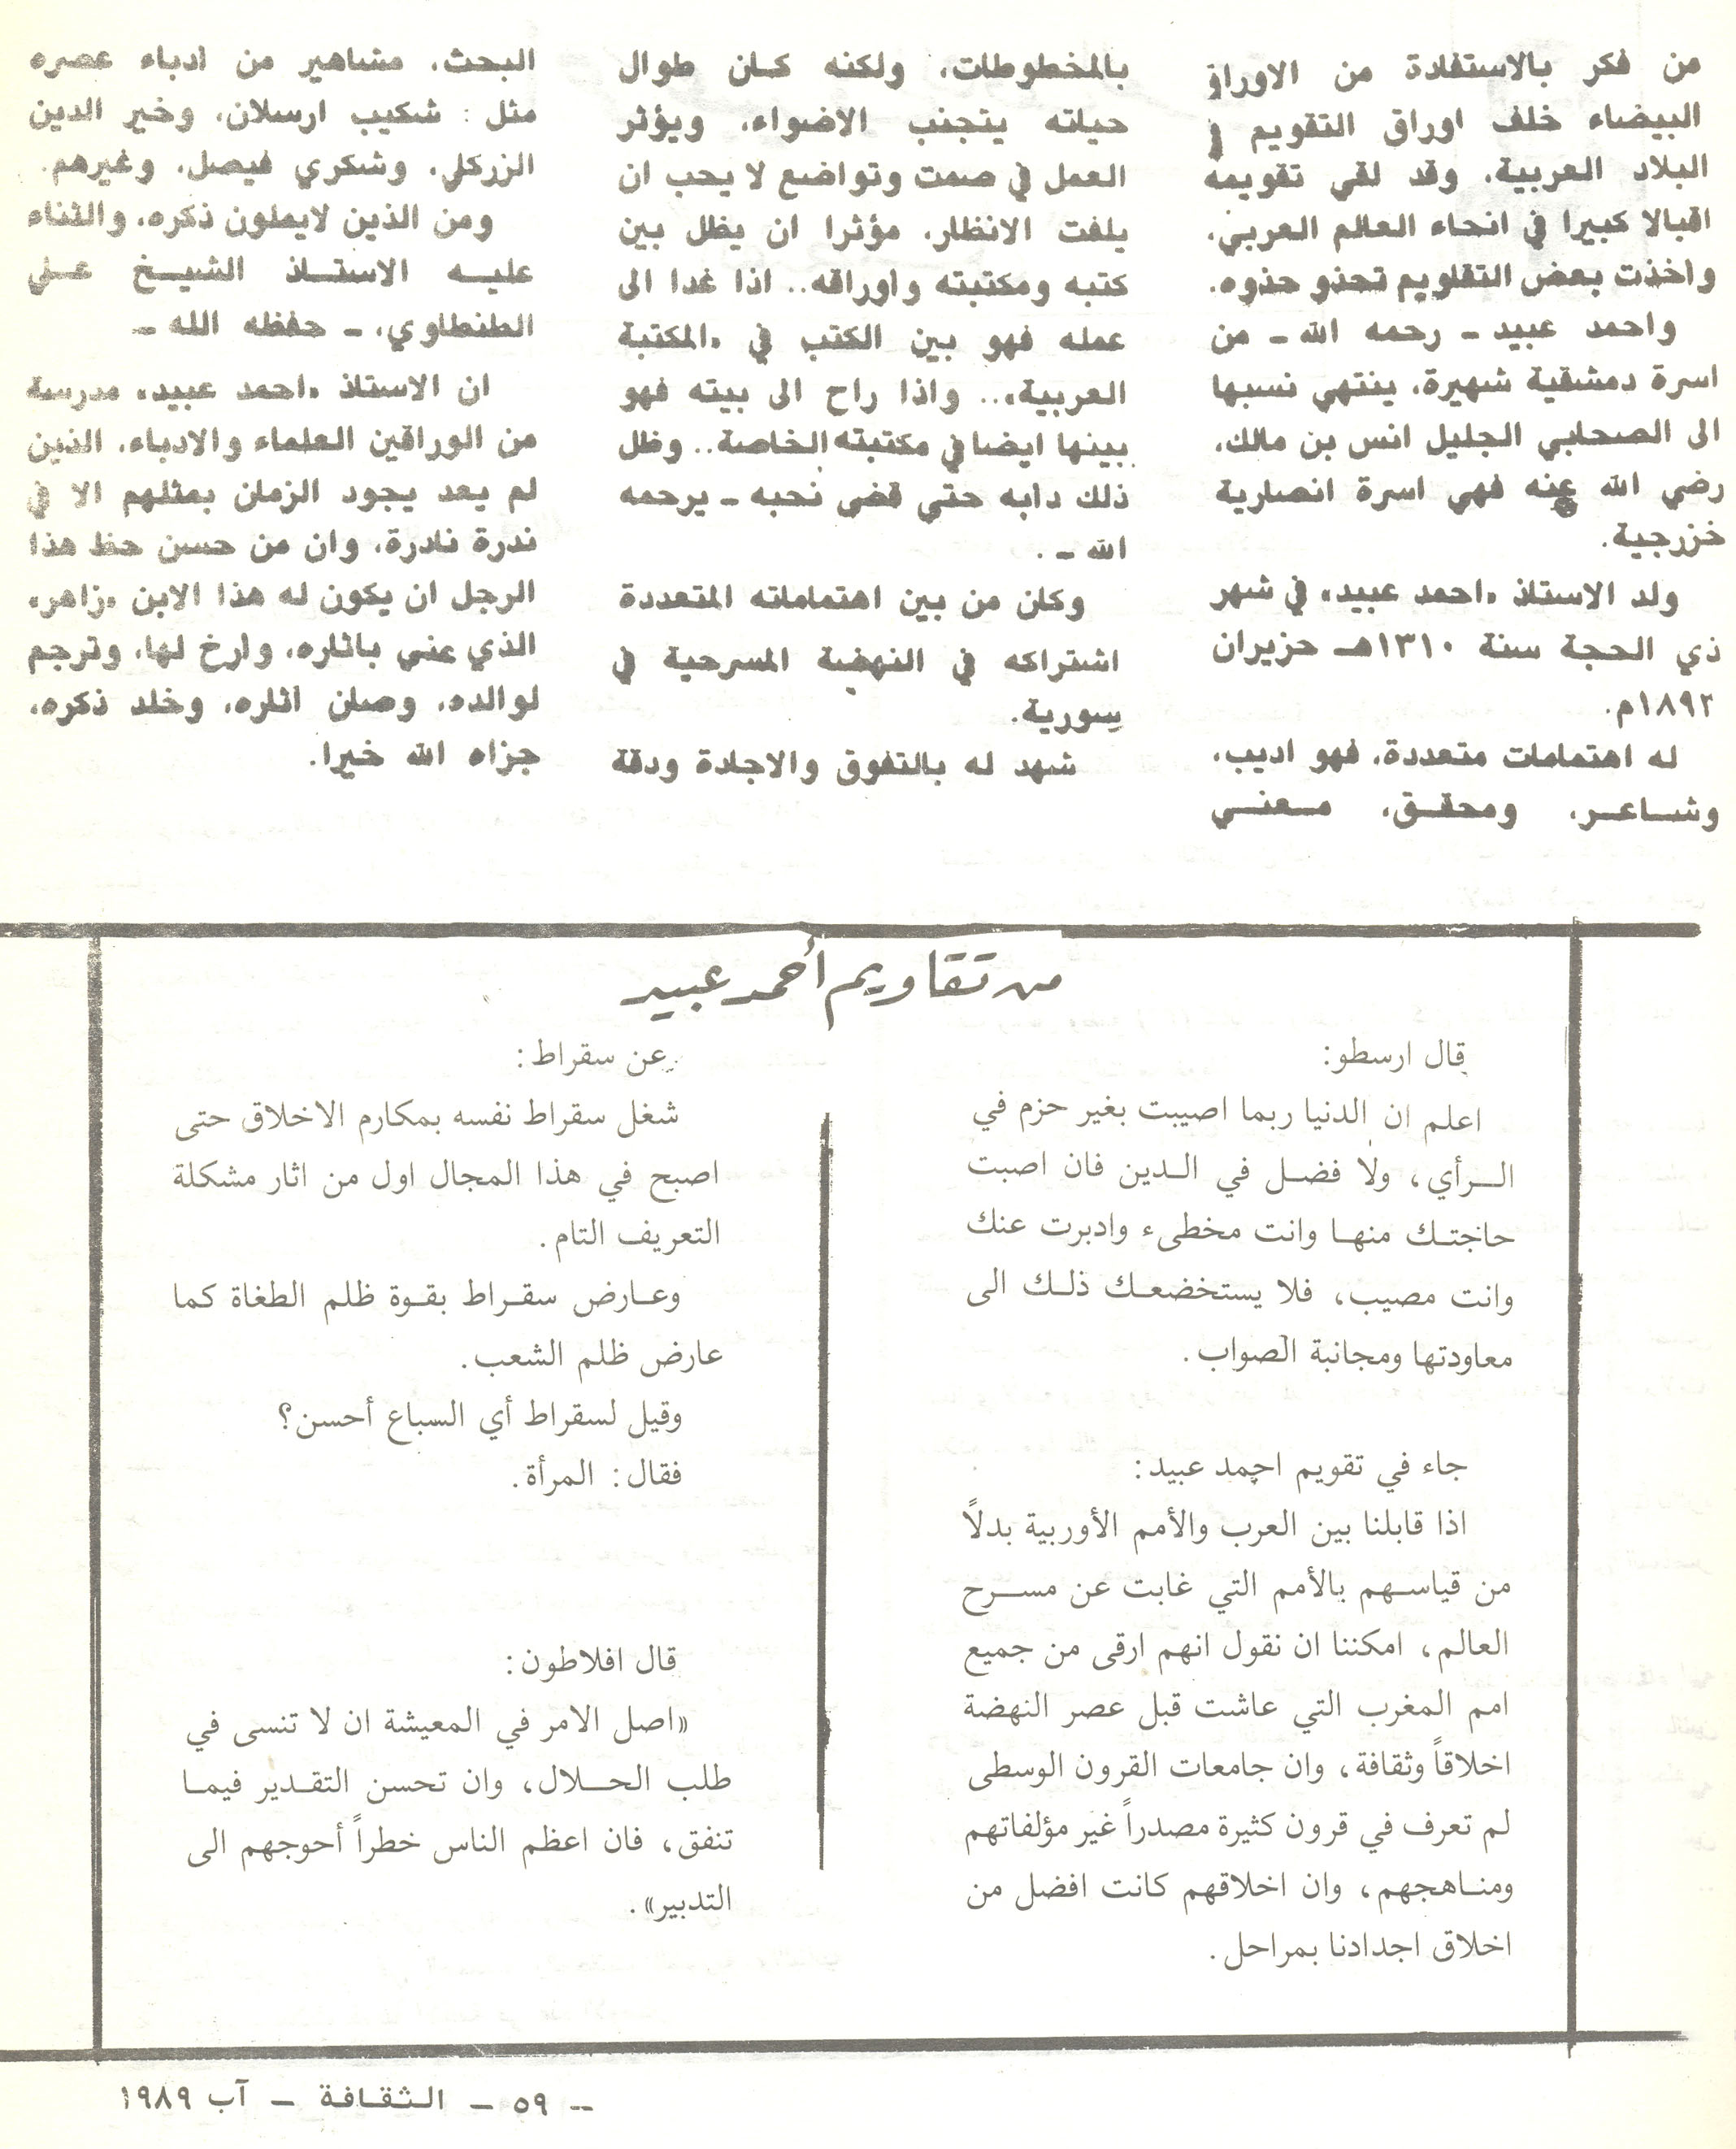 من فكر بالاستفادة من الاوراق
البيضاء خلف اوراق التقويم في
البلاد العربية، وقد لقي تقويمه
اقبالا كبيرا في انحاء العالم العربي،
واخذت بعض التقاويم تحذو حذوه.
واحمد عبيد ـ رحمه الله ـ من
اسرة دمشقية شهيرة، ينتهي نسبها
الى الصحابي الجليل انس بن مالك،
رضي الله عنه فهي اسرة انصارية
خزرجية.
ولد الاستاذ «احمد عبيد» في شهر
ذي الحجة سنة ١٣١٠هـ حزيران
١٨٩٢م.
له اهتمامات متعددة، فهو اديب،
وشاعر، ومحقق، معني
بالمخطوطات، ولكنه كان طوال
حياته يتجنب الاضواء، ويؤثر
العمل في صمت وتواضع لا يحب ان
يلفت الانظار، مؤثرا ان يظل بين
كتبه ومكتبته واوراقه.. اذا غدا الى
عمله فهو بين الكتب في «المكتبة
العربية».. واذا راح الى بيته فهو
بينها ايضا في مكتبته الخاصة.. وظل
ذلك دابه حتى قضى نحبه ـ يرحمه
الله ـ .
وكان من بين اهتماماته المتعددة
اشتراكه في النهضة المسرحية في
سورية.
شهد له بالتفوق والاجادة ودقة
البحث، مشاهير من ادباء عصره
مثل : شكيب ارسلان، وخير الدين
الزركلي، وشكري فيصل، وغيرهم.
ومن الذين لايملون ذكره، والثناء
عليه الاستاذ الشيخ علي
الطنطاوي، ـ حفظه الله ـ
ان الاستاذ «احمد عبيد» مدرسة
من الوراقين العلماء والادباء، الذين
لم يعد يجود الزمان بمثلهم الا في
ندرة نادرة، وان من حسن حظ هذا
الرجل ان يكون له هذا الابن «زاهر»
الذي عني باثاره، وارخ لها، وترجم
لوالده، وصان اثاره، وخلد ذكره،
جزاه الله خيرا.
من تقاويم أحمد عبيد
قال ارسطو:
اعلم ان الدنيا ربما اصيبت بغير حزم في
الرأي، ولا فضل في الدين فان اصبت
حاجتك منها وانت مخطىء وادبرت عنك
وانت مصيب، فلا يستخضعك ذلك الى
معاودتها ومجانبة الصواب.
جاء في تقويم احمد عبيد:
اذا قابلنا بين العرب والأمم الأوربية بدلاً
من قياسهم بالأمم التي غابت عن مسرح
العالم، امكننا ان نقول انهم ارقى من جميع
امم المغرب التي عاشت قبل عصر النهضة
اخلاقاً وثقافة، وان جامعات القرون الوسطى
لم تعرف في قرون كثيرة مصدراً غير مؤلفاتهم
ومناهجهم، وان اخلاقهم كانت افضل من
اخلاق اجدادنا بمراحل.
عن سقراط:
شغل سقراط نفسه بمكارم الاخلاق حتى
اصبح في هذا المجال اول من اثار مشكلة
التعريف التام.
وعارض سقراط بقوة ظلم الطغاة كما
عارض ظلم الشعب.
وقيل لسقراط أي السباع أحسن؟
فقال: المرأة.
قال افلاطون:
«اصل الامر في المعيشة ان لا تنسى في
طلب الحلال، وان تحسن التقدير فيما
تنفق، فان اعظم الناس خطراً أحوجهم الى
التدبير».
ـ ٥٩ ـ الثقافة ـ آب ١٩٨٩